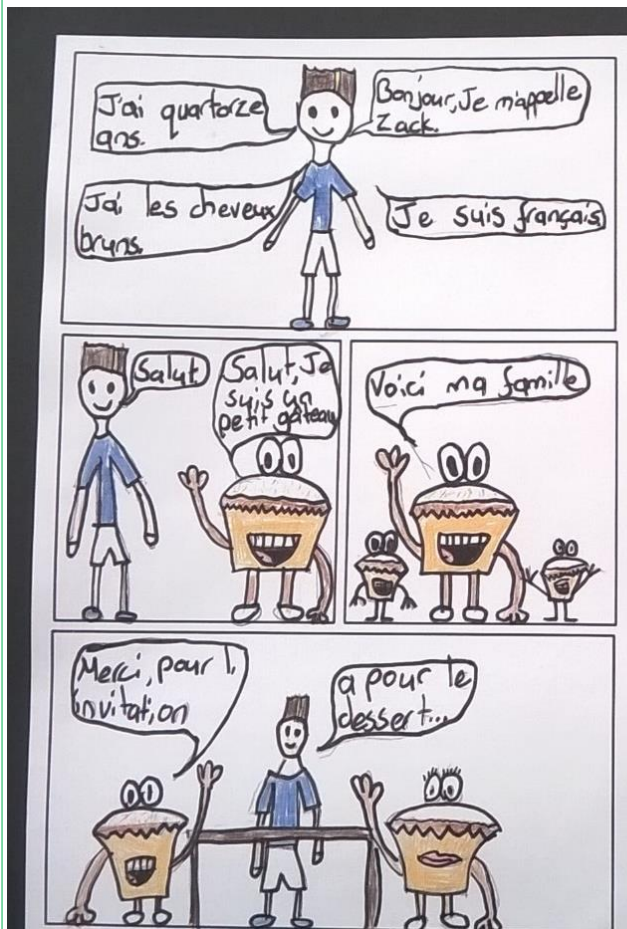 J'ai quartorze
ans.
Bonjour, Je m'appelle
Zack.
J'ai les cheveux
bruns.
Je suis français
Salut
Salut, Je
suis un
petit gâteau
Voici ma famille
Merci, pour l,
invitation
a pour le
dessert...